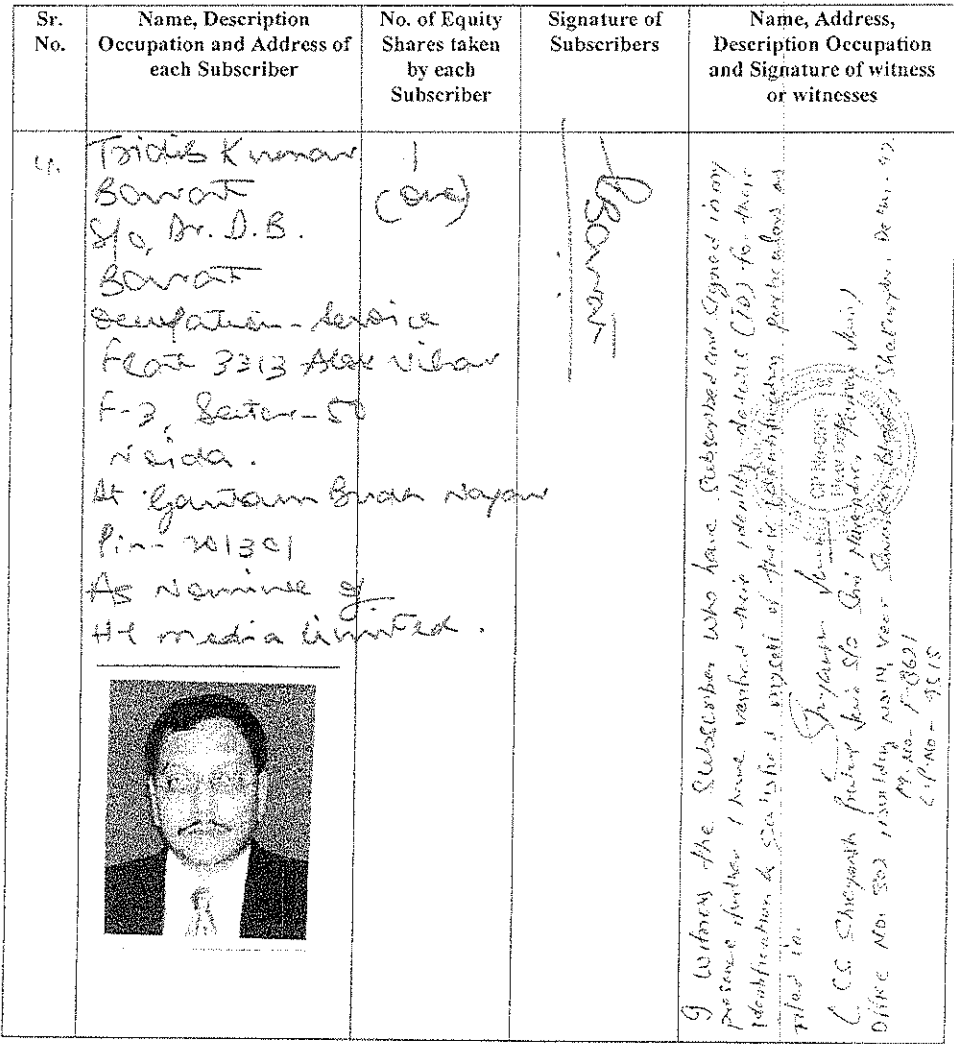 Sr. No.
Name, Description Occupation and Address of each Subscriber
No. of Equity Shares taken by each Subscriber
Signature of Subscribers
Name, Address, Description Occupation and Signature of witness or witnesses
4.
Tridib Kumar
Barat
S/o, Dr. D.B.
Barat
Occupation - Service
Flat 3313
F-3, Sector-50
Noida.
Gautam Budh Nagar
Pin - 201301
As Nominee of
HT media limited.
1
(one)
Barat
I witness the Subscribers who have Subscribed and Signed in my
presence further I have verified their identity details (ID) for their
identification & satisfied myself of their identification particulars as
filled in.
(CS. Shreyansh Pratap Jain S/o Shri
Office No. 302 Shakarpur, Delhi - 92
M. No - F-8621
C.P. No - 9515